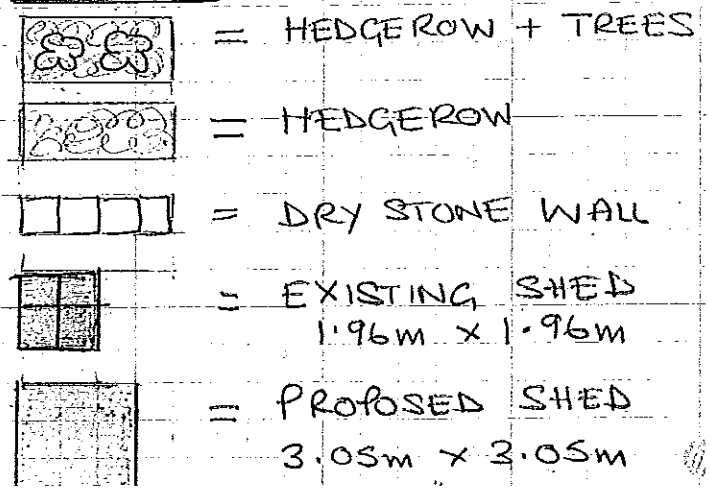 = HEDGEROW + TREES
= HEDGEROW
= DRY STONE WALL
= EXISTING SHED
1.96m x 1.96m
= PROPOSED SHED
3.05m x 3.05m